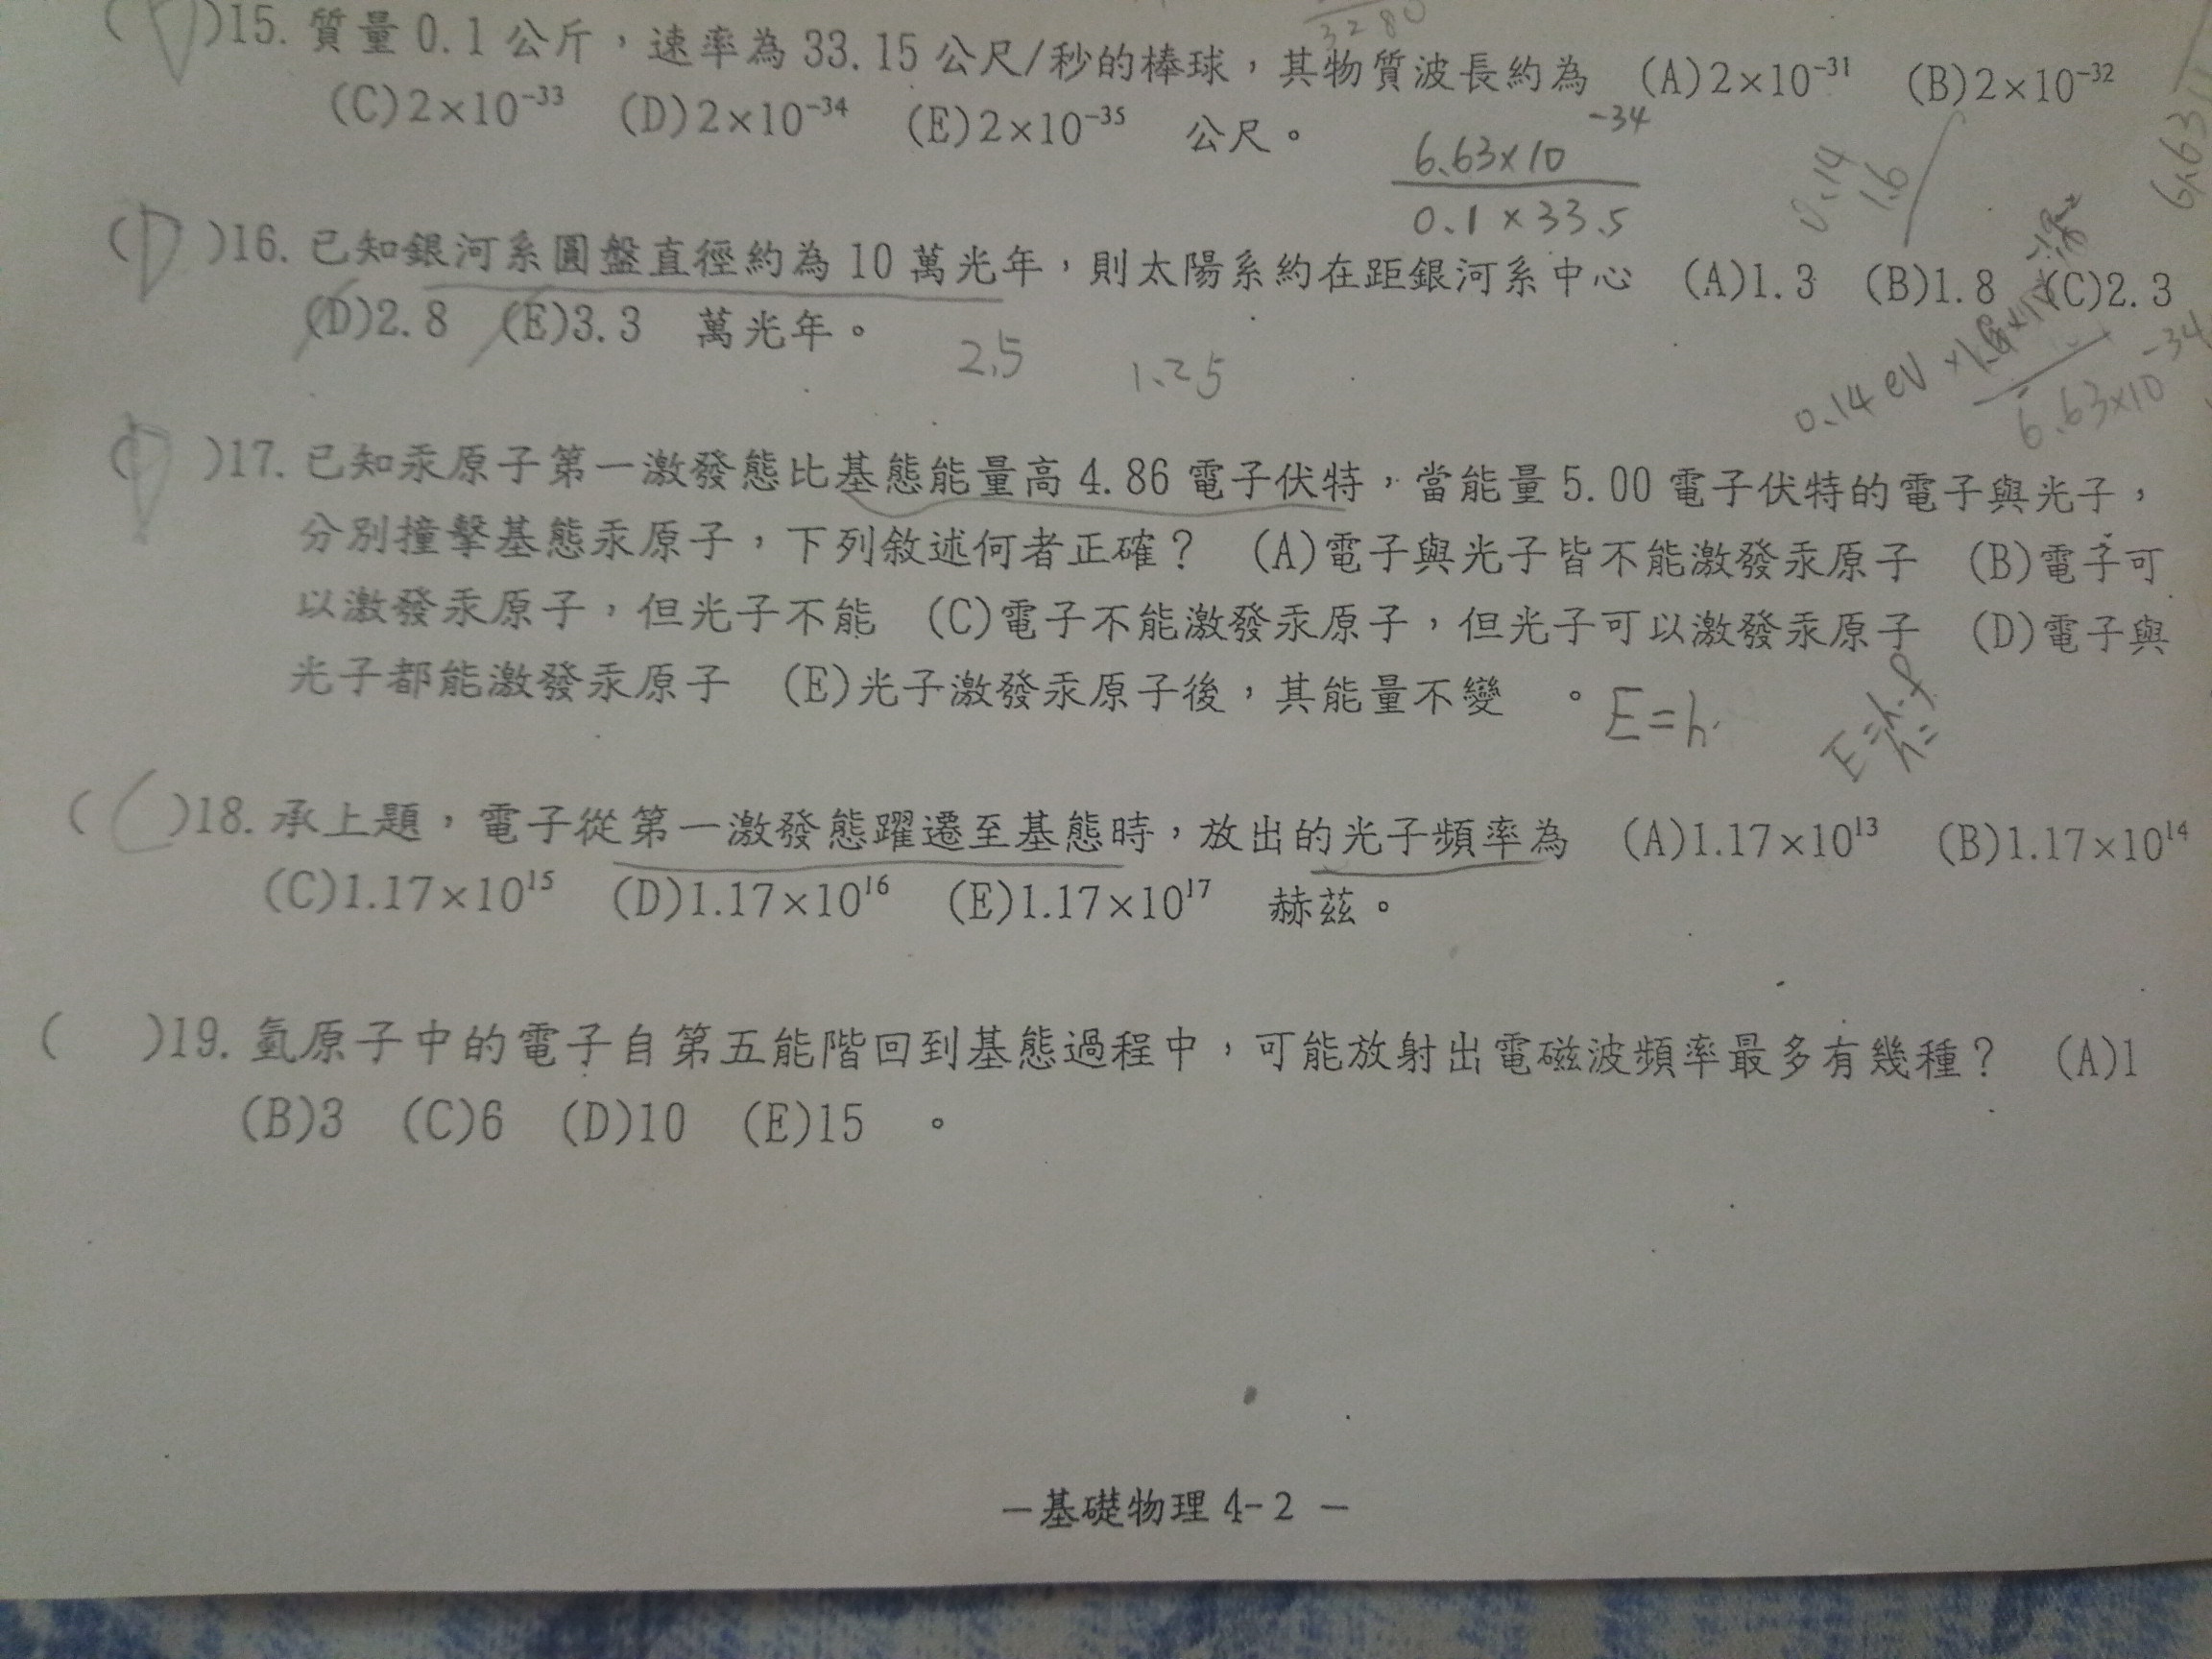 (D)15. 質量0.1公斤，速率為33.15公尺/秒的棒球，其物質波長約為 (A)2×10⁻³¹ (B)2×10⁻³²
(C)2×10⁻³³ (D)2×10⁻³⁴ (E)2×10⁻³⁵ 公尺。
6.63×10⁻³⁴
0.1×33.5
0.14
1.6
(D)16. 已知銀河系圓盤直徑約為10萬光年，則太陽系約在距銀河系中心 (A)1.3 (B)1.8 (C)2.3
(D)2.8 (E)3.3 萬光年。
2.5 1.25
6.63×10⁻³⁴
(D)17. 已知汞原子第一激發態比基態能量高4.86電子伏特，當能量5.00電子伏特的電子與光子，
分別撞擊基態汞原子，下列敘述何者正確？ (A)電子與光子皆不能激發汞原子 (B)電子可
以激發汞原子，但光子不能 (C)電子不能激發汞原子，但光子可以激發汞原子 (D)電子與
光子都能激發汞原子 (E)光子激發汞原子後，其能量不變 。
E=h·
E=h·f
h=
(C)18. 承上題，電子從第一激發態躍遷至基態時，放出的光子頻率為 (A)1.17×10¹³ (B)1.17×10¹⁴
(C)1.17×10¹⁵ (D)1.17×10¹⁶ (E)1.17×10¹⁷ 赫茲。
( )19. 氫原子中的電子自第五能階回到基態過程中，可能放射出電磁波頻率最多有幾種？ (A)1
(B)3 (C)6 (D)10 (E)15 。
－基礎物理4-2－